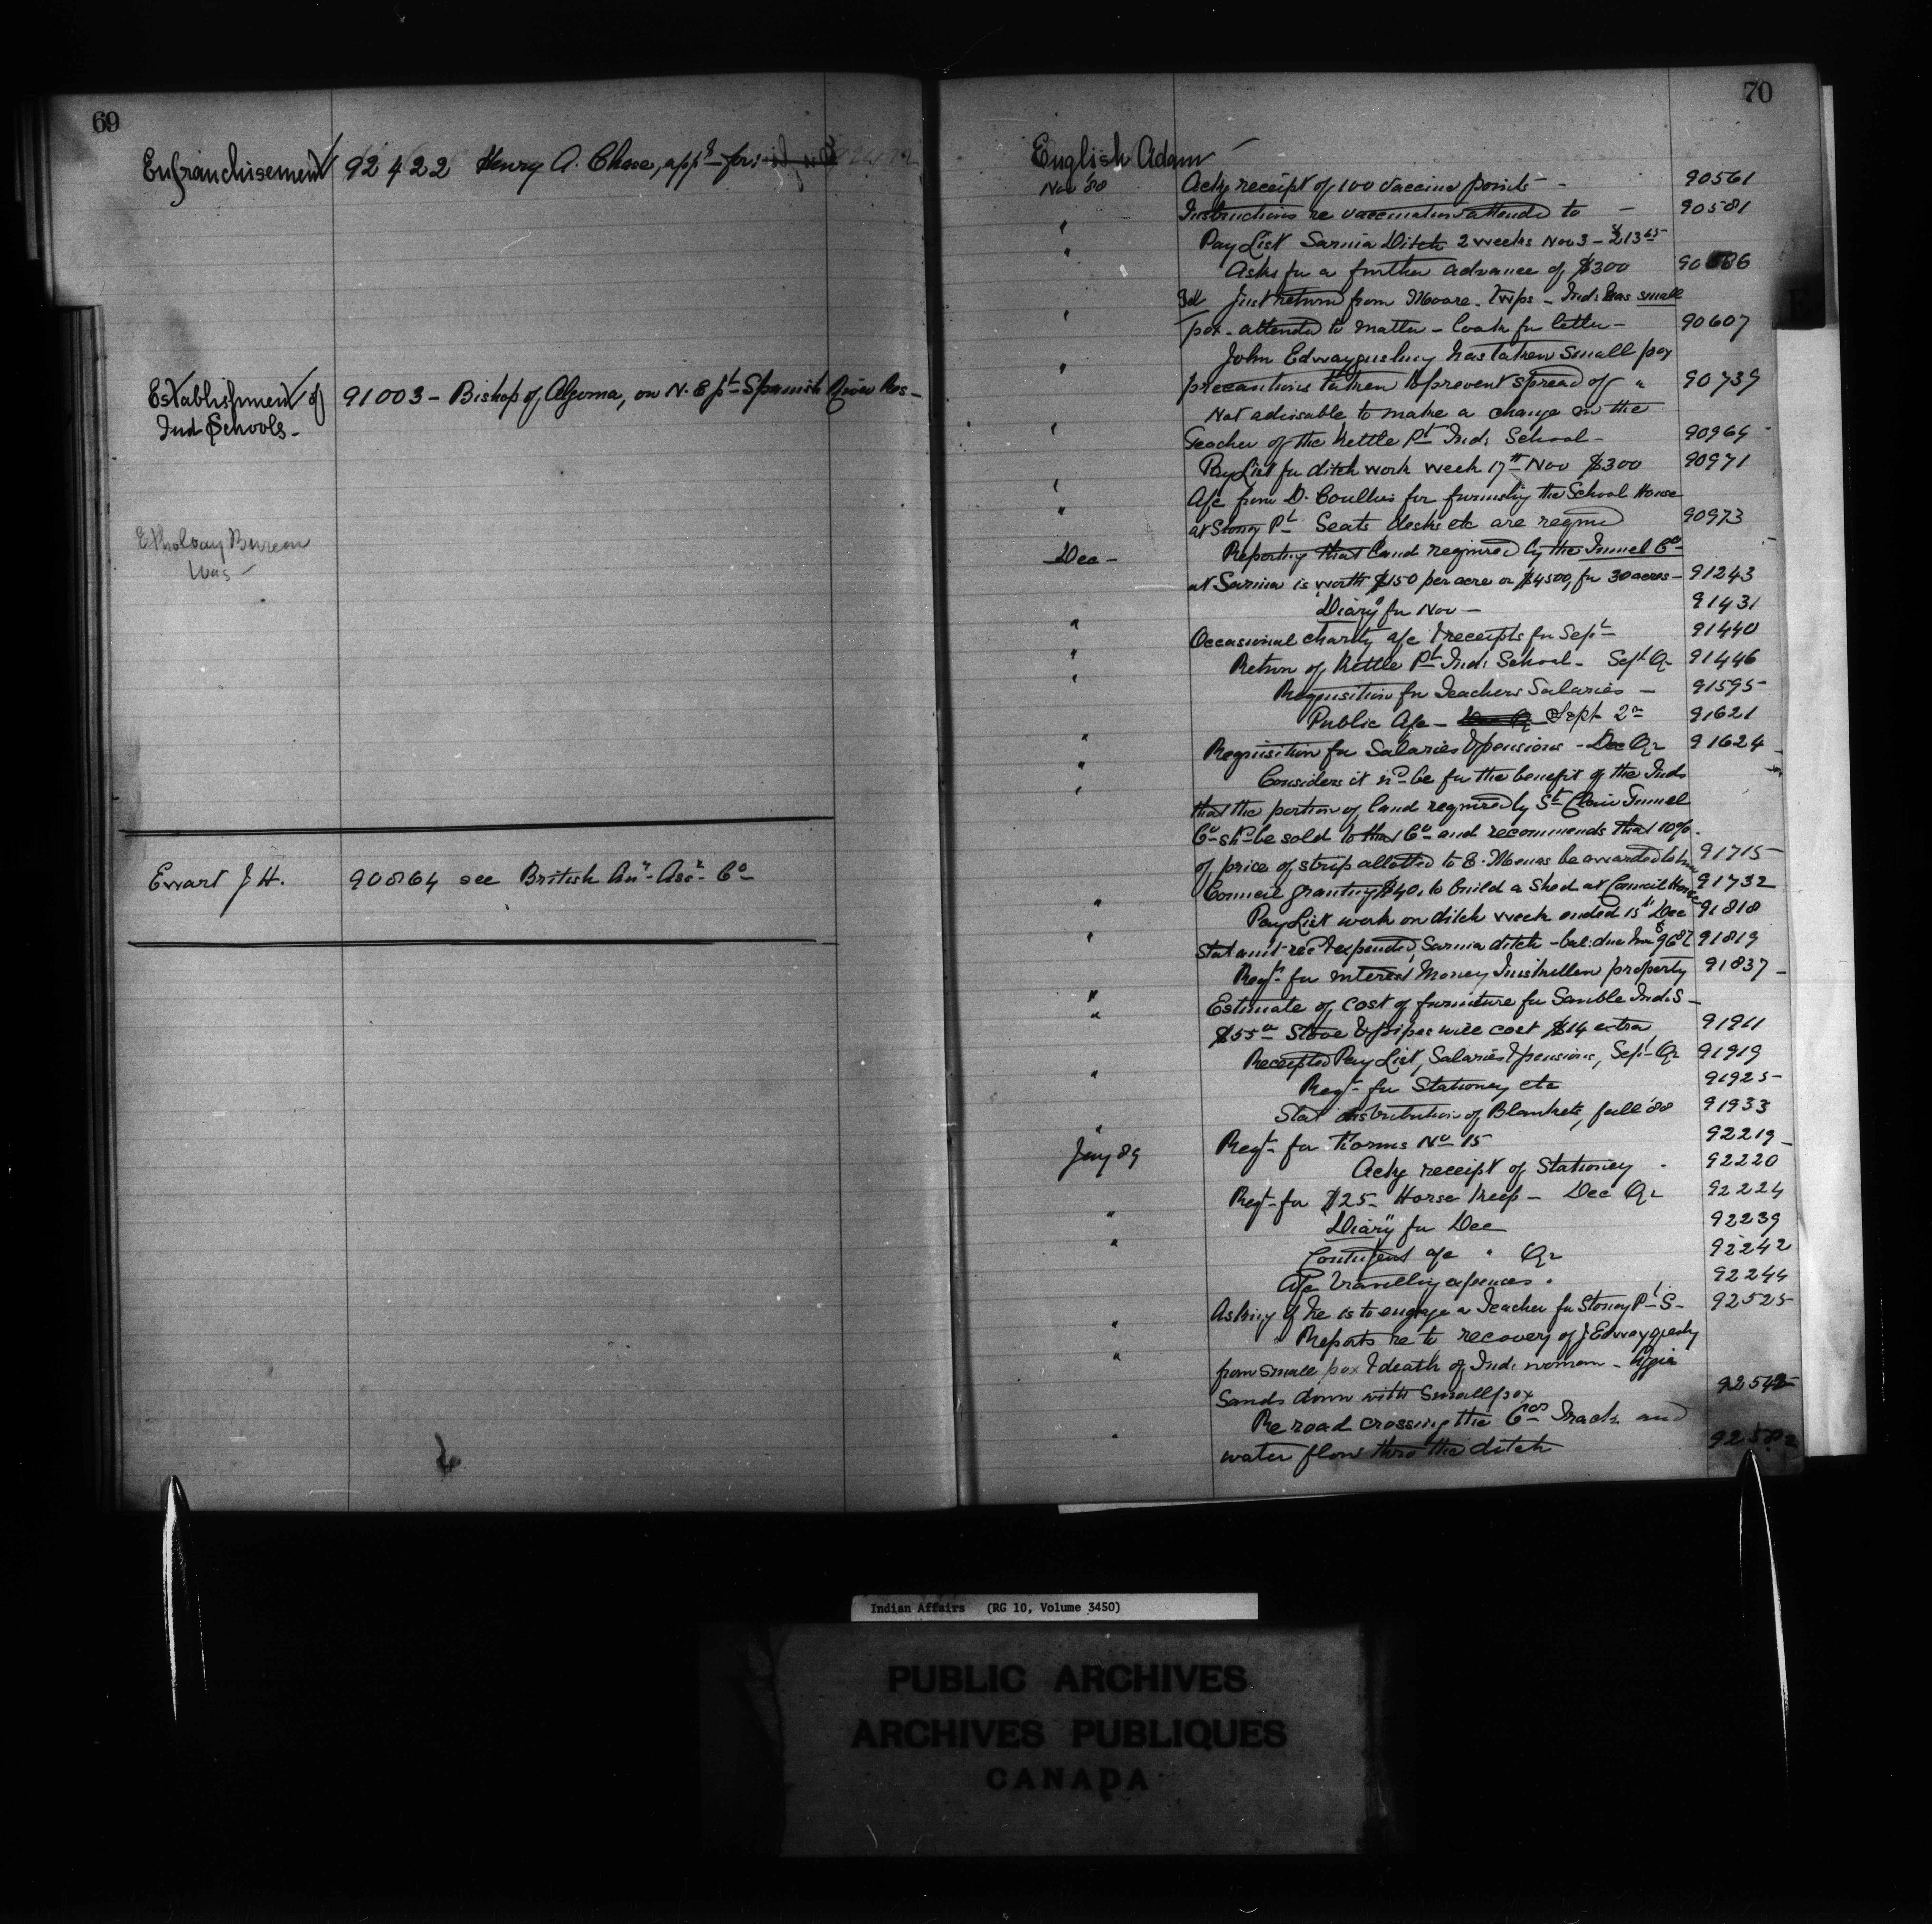 69
Enfranchisement 92422 Henry A. Chase, appn for
Establishment of 91003 - Bishop of Algoma, on N. E pt Spanish River Res -
Ind Schools -
Ethology Bureau
Was -
Ewart J H. 90864 see British Am Ass Co
70
English Adam
Nov '88 Ackg receipt of 100 vaccine points - 90561
" Instructions re vaccination attended to - 90581
" Pay List Sarnia Ditch 2 weeks Nov 3 - $213 65
Asks for a further advance of $300
Just return from Moore Twps - Ind: has small
" pox - attended to matter - look for letter - 90607
John has taken small pox
" precautions taken to prevent spread of " 90739
Not advisable to make a change in the
" Teacher of the Kettle Pt Ind: School - 90964
Pay List for ditch work week 17th Nov $300 90971
" A/c from D. for furnishg the School House
" at Stoney Pt Seats desks etc are reqned 90973
Dec - Reporting that land required by the Tunnel Co
at Sarnia is worth $150 per acre or $4500 for 30 acres - 91243
"Diary" for Nov - 91431
" Occasional charity a/c & receipts for Sept 91440
" Return of Kettle Pt Ind: School - Sept Qr 91446
" Requisition for Teachers Salaries - 91595
Public A/c - Sept Qr 91621
" Requisition for Salaries & pensions - Dec Qr 91624
" Considers it wd be for the benefit of the Inds
" that the portion of land required by St Clair Tunnel
Co shd be sold to that Co and recommends that 10%
of price of strip allotted to E. be awarded to him 91715
Council granting $40. to build a Shed at Council House 91732
" Pay List work on ditch week ended 15th Dec 91818
" Stat amt recd & expended, Sarnia ditch - bal: due him $96 91819
Reqn for interest Money Inniskillen property 91837
" Estimate of cost of furniture for Sauble Ind S -
" $55 Stove & pipes will cost $14 extra 91911
Receipted Pay List, Salaries & pensions, Sept Qr 91919
" Reqn for Stationey etc 91925
Stat distribution of Blankets, fall '88 91933
Jany 89 Reqn for Forms No 15 92219
Ackg receipt of Stationey 92220
Reqn for $25 - Horse keep - Dec Qr 92224
" "Diary" for Dec 92239
" Contingent a/c " Qr 92242
A/c Travellig expenses " 92244
Asking if he is to engage a Teacher for Stoney Pt S - 92525
" Reports re to recovery of J
" from small pox & death of Ind: woman -
Sands down with Small pox
Re road crossing the Co's Track and
" water flow thro the ditch
Indian Affairs (RG 10, Volume 3450)
PUBLIC ARCHIVES
ARCHIVES PUBLIQUES
CANADA